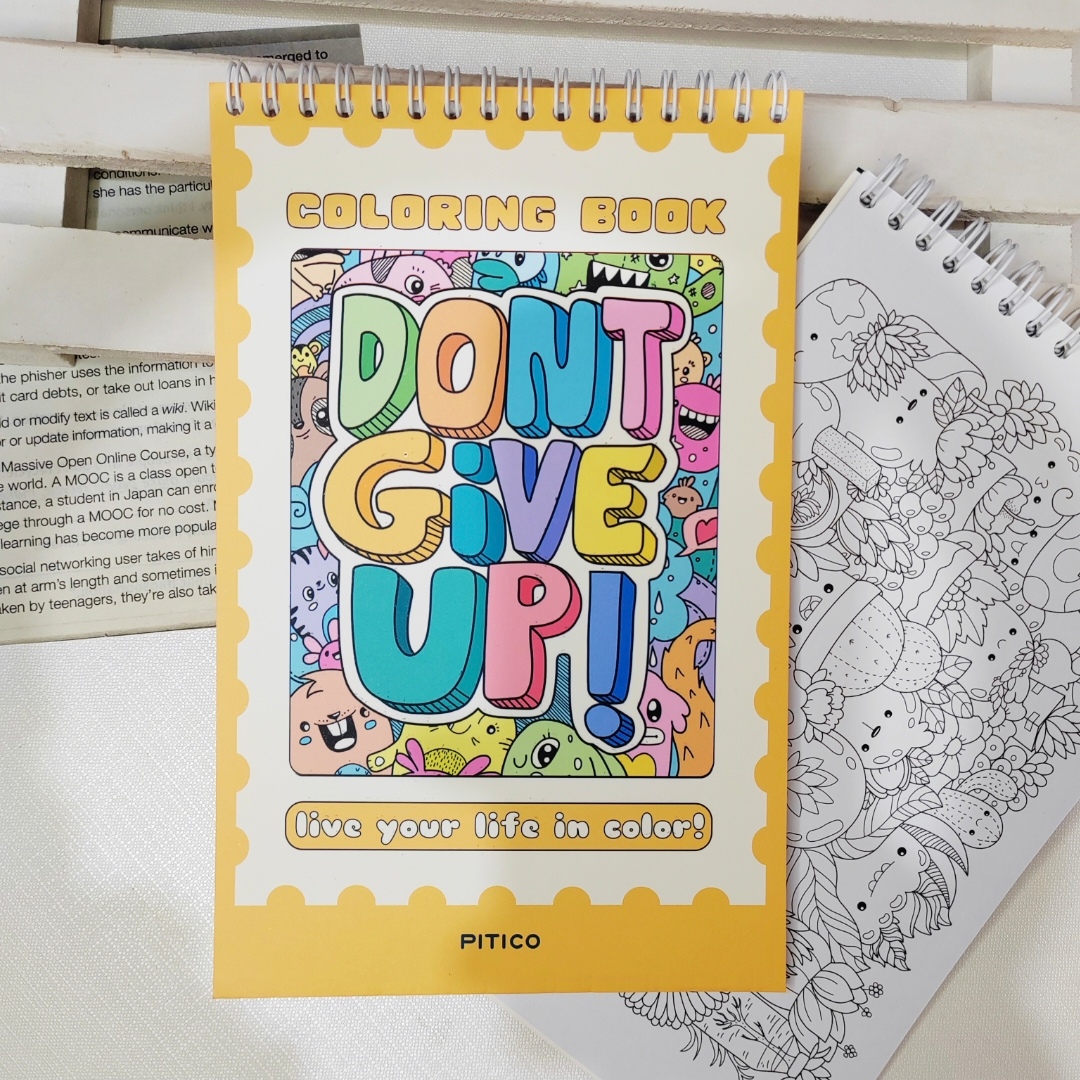 merged to
conditions.
she has the particul
communicate w
the phisher uses the information to
t card debts, or take out loans in h
d or modify text is called a wiki. Wiki
or or update information, making it a
Massive Open Online Course, a ty
e world. A MOOC is a class open t
stance, a student in Japan can enro
ege through a MOOC for no cost.
learning has become more popula
social networking user takes of hin
en at arm's length and sometimes i
aken by teenagers, they're also tak
COLORING BOOK
DONT
GiVE
UP!
live your life in color!
PITICO